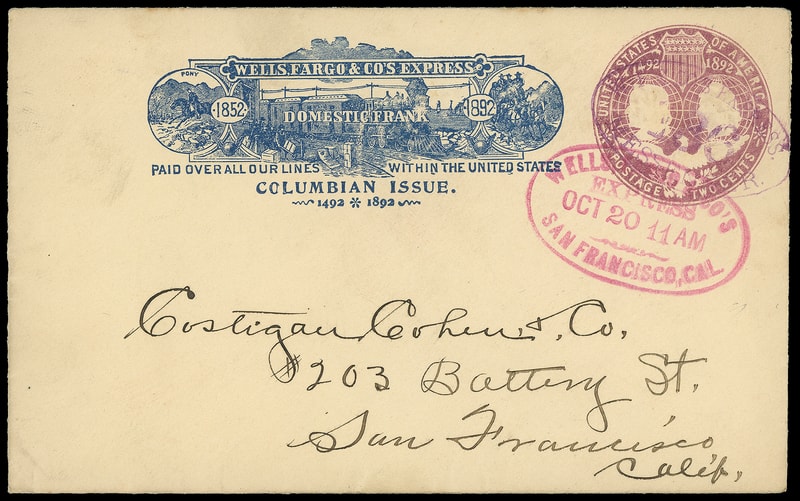 PONY
WELLS, FARGO & CO'S EXPRESS
1852
DOMESTIC FRANK
1892
PAID OVER ALL OUR LINES WITHIN THE UNITED STATES
COLUMBIAN ISSUE.
1492 1892
UNITED STATES OF AMERICA
1492 1892
POSTAGE TWO CENTS
WELLS CO'S
EXPRESS
OCT 20 11 AM
SAN FRANCISCO, CAL.
Costigan, Cohen & Co.
#203 Battery St.
San Francisco
Calif.